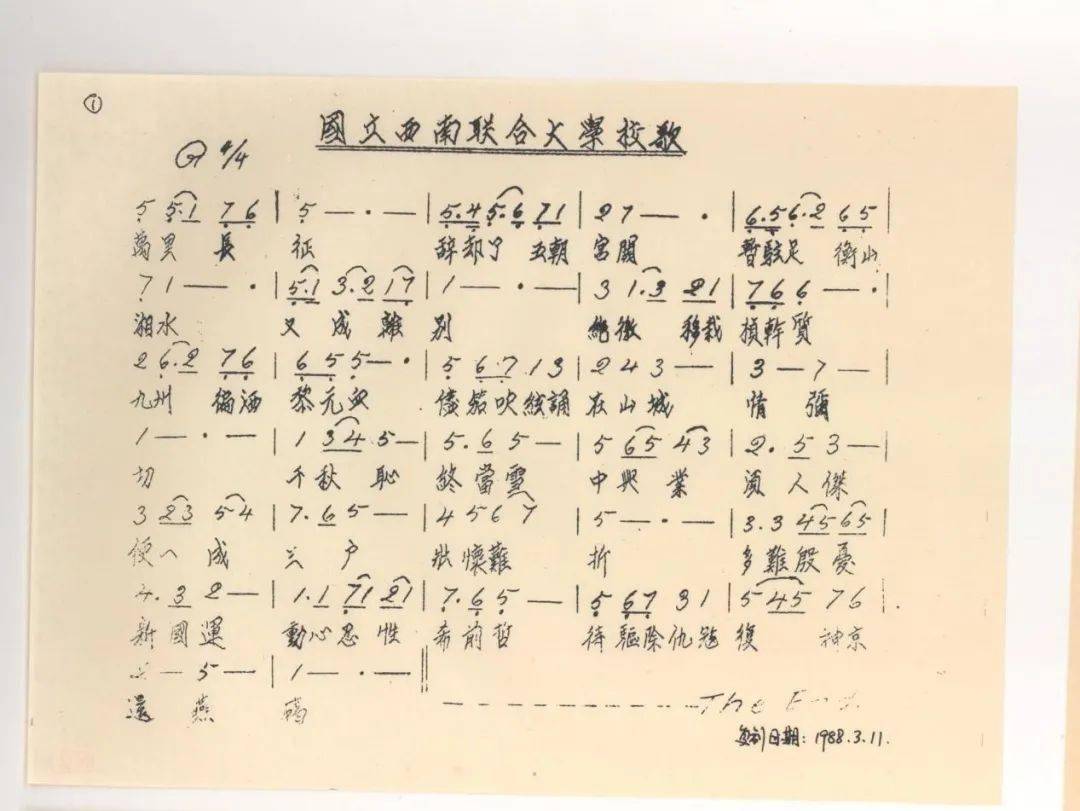 ①
國立西南联合大學校歌
G 4/4
5 5·1 76 | 5 — · — | 5·4 5·6 71 | 27 — · | 6·5 6·2 65 |
萬里 長 征 辞却了 五朝 宮闕 暫駐足 衡山
71 — · | 5·1 3·2 17 | 1 — · — | 3 1·3 21 | 766 — · |
湘水 又 成 離 别 絶徼 移栽 楨幹質
2 6·2 76 | 655 — · | 5 67 13 | 243 — | 3 — 7 — |
九州 徧洒 黎元血 儘笳吹絃誦 在山城 情 彌
1 — · — | 1 34 5 — | 5·6 5 — | 5 65 43 | 2· 5 3 — |
切 千秋 恥 終當雪 中興 業 須人傑
3 23 54 | 7·6 5 — | 4567 | 5 — · — | 3·3 45 65 |
便一成 三 户 壯懷難 折 多難殷憂
4·3 2 — | 1·1 71 21 | 7·6 5 — | 5 67 31 | 5 45 76 |
新國運 動心忍性 希前哲 待驅除仇冦 復 神京
— 5 — | 1 — · — ‖
還 燕 碣
The End.
复刻日期：1988.3.11.